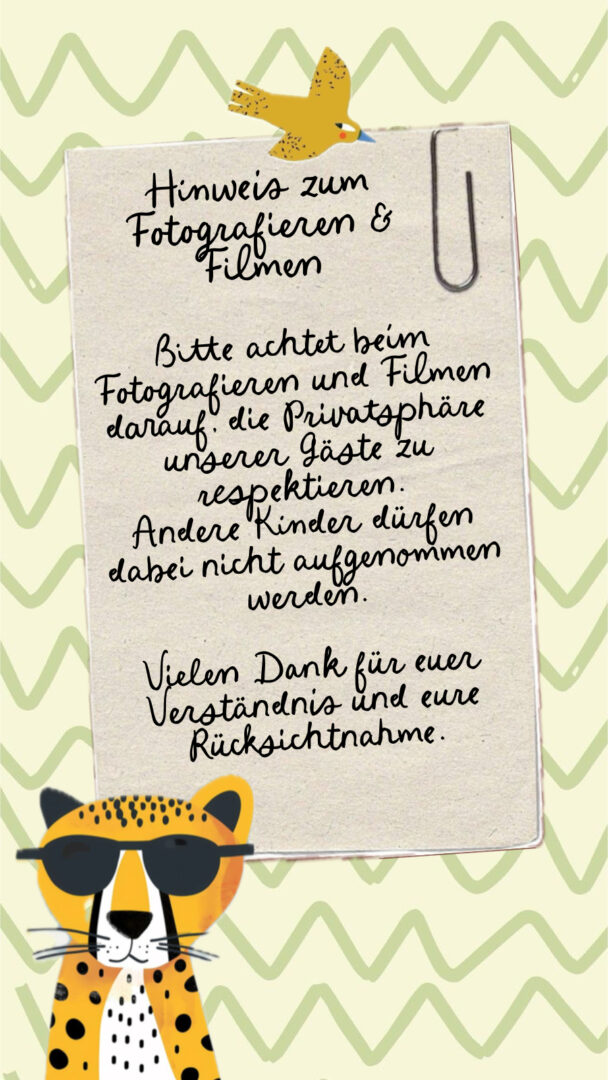 Hinweis zum
Fotografieren &
Filmen
Bitte achtet beim
Fotografieren und Filmen
darauf, die Privatsphäre
unserer Gäste zu
respektieren.
Andere Kinder dürfen
dabei nicht aufgenommen
werden.
Vielen Dank für euer
Verständnis und eure
Rücksichtnahme.